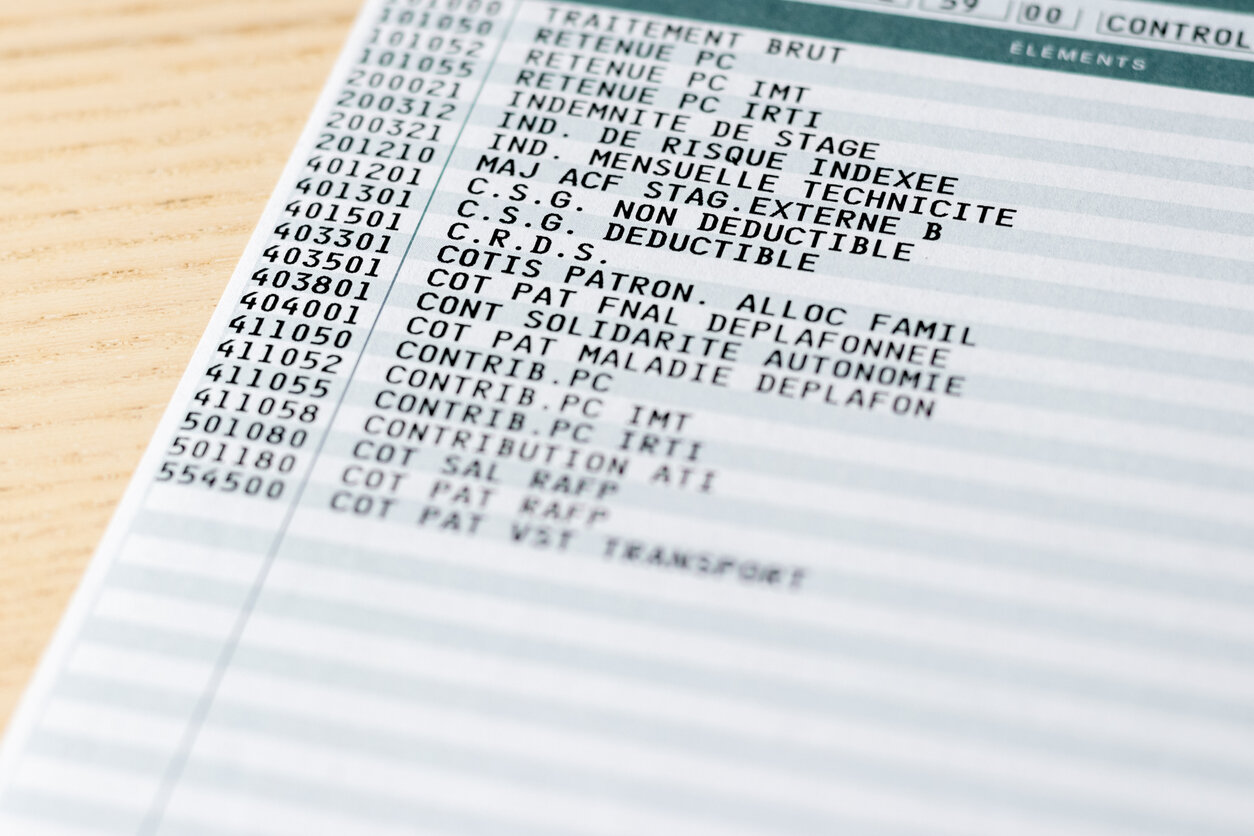 59 00 CONTROL
ÉLÉMENTS
101000 TRAITEMENT BRUT
101050 RETENUE PC
101052 RETENUE PC IMT
101055 RETENUE PC IRTI
200021 INDEMNITE DE STAGE
200312 IND. DE RISQUE INDEXEE
200321 IND. MENSUELLE TECHNICITE
201210 MAJ ACF STAG.EXTERNE B
401201 C.S.G. NON DEDUCTIBLE
401301 C.S.G. DEDUCTIBLE
401501 C.R.D.S.
403301 COTIS PATRON. ALLOC FAMIL
403501 COT PAT FNAL DEPLAFONNEE
403801 CONT SOLIDARITE AUTONOMIE
404001 COT PAT MALADIE DEPLAFON
411050 CONTRIB.PC
411052 CONTRIB.PC IMT
411055 CONTRIB.PC IRTI
411058 CONTRIBUTION ATI
501080 COT SAL RAFP
501180 COT PAT RAFP
554500 COT PAT VST TRANSPORT